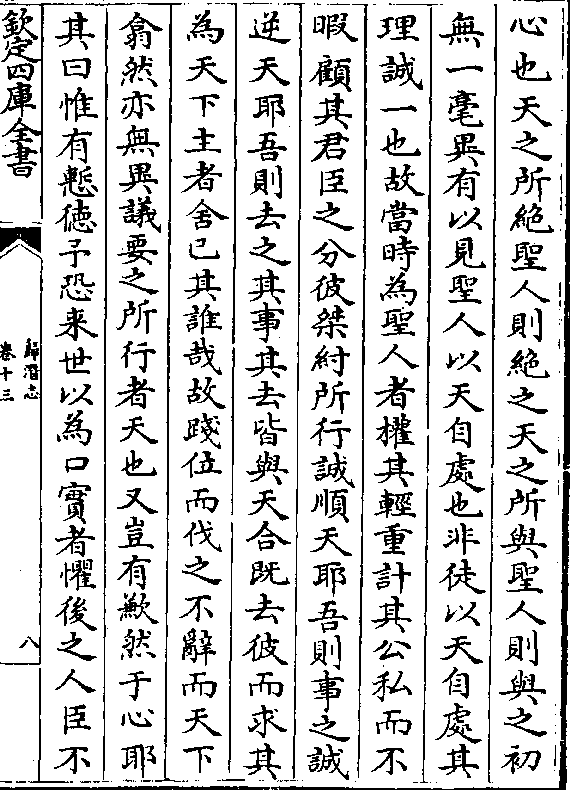 心也天之所絶聖人則絶之天之所與聖人則與之初
無一毫異有以見聖人以天自處也非徒以天自處其
理誠一也故當時為聖人者權其輕重計其公私而不
暇顧其君臣之分彼桀紂所行誠順天耶吾則事之誠
逆天耶吾則去之其事其去皆與天合既去彼而求其
為天下主者舍已其誰哉故踐位而伐之不辭而天下
翕然亦無異議要之所行者天也又豈有歉然于心耶
其曰惟有慙徳予恐来世以為口實者懼後之人臣不
欽定四庫全書
歸潛志
卷十三
八